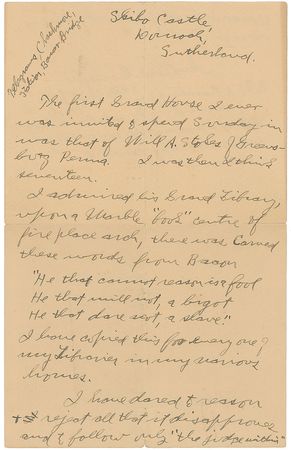 Skibo Castle,
Dornoch,
Sutherland.
Telegrams Clashmore,
Station, Bonar Bridge
The first Grand House I ever
was invited to spend Sunday in
was that of Will A. Stokes of Greens-
burg Penna. I was then I think
seventeen.
I admired his Grand Library,
upon a Marble "book" centre of
fire place arch, there was Carved
these words from Bacon
"He that cannot reason is a fool
He that will not, a bigot
He that dare not, a slave."
I have copied this for every one of
my Libraries in my various
homes.
I have dared to reason
& reject all that it disapproves
and to follow only "the judge within"